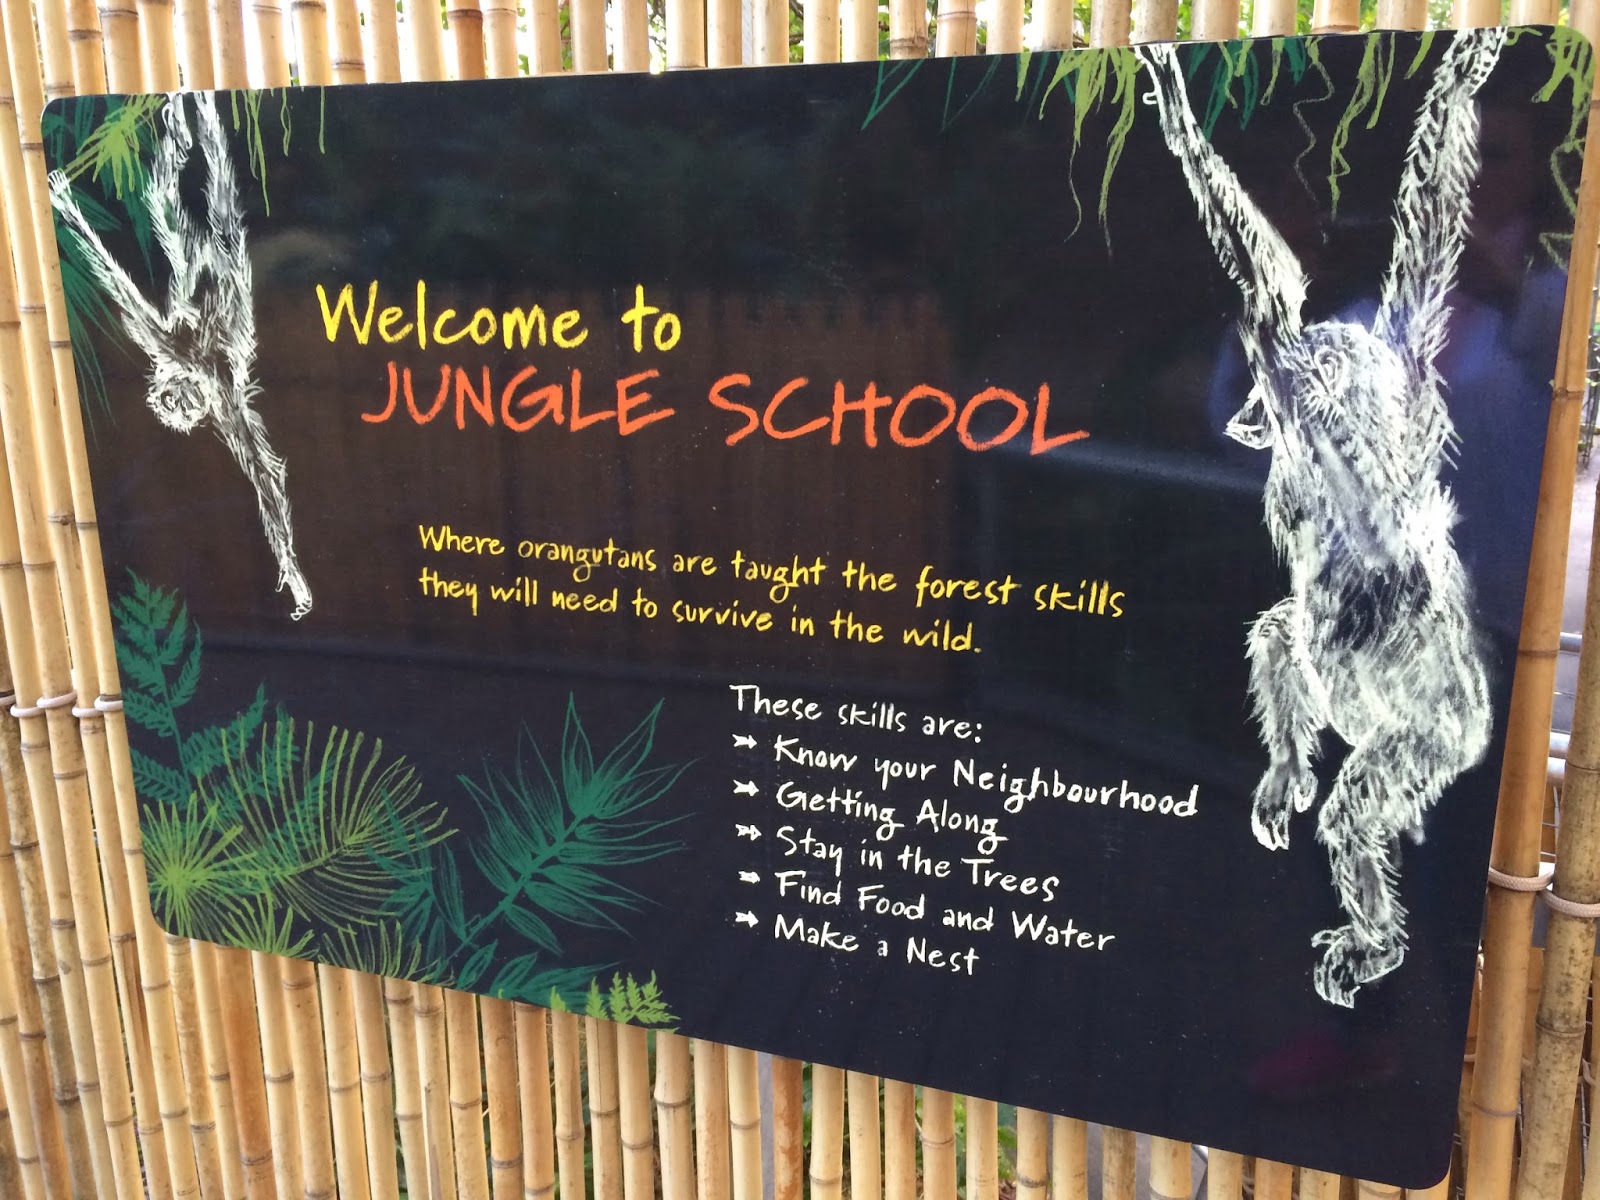 Welcome to
JUNGLE SCHOOL
Where orangutans are taught the forest skills
they will need to survive in the wild.
These skills are:
Know your Neighbourhood
Getting Along
Stay in the Trees
Find Food and Water
Make a Nest